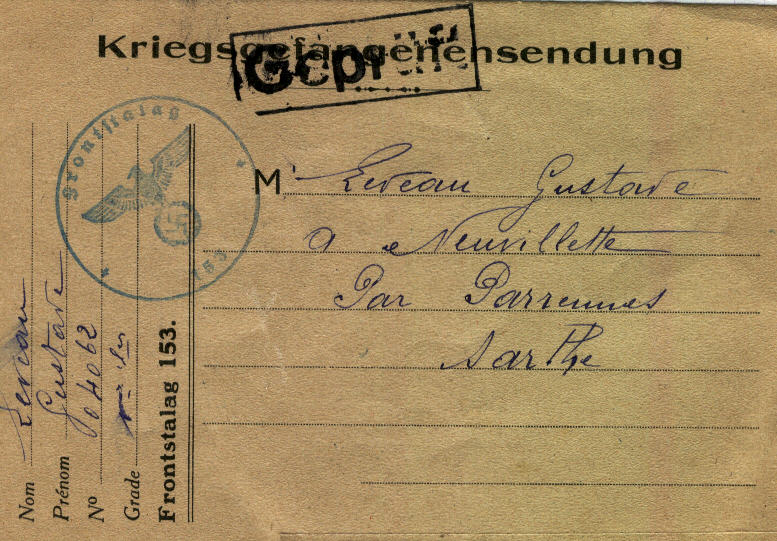 Kriegsgefangenensendung
Geprüft
Frontstalag
153
Mr Lereau Gustave
a Neuvillette
Par Parrennes
Sarthe
Nom Lereau
Prénom Gustave
No
Grade
Frontstalag 153.